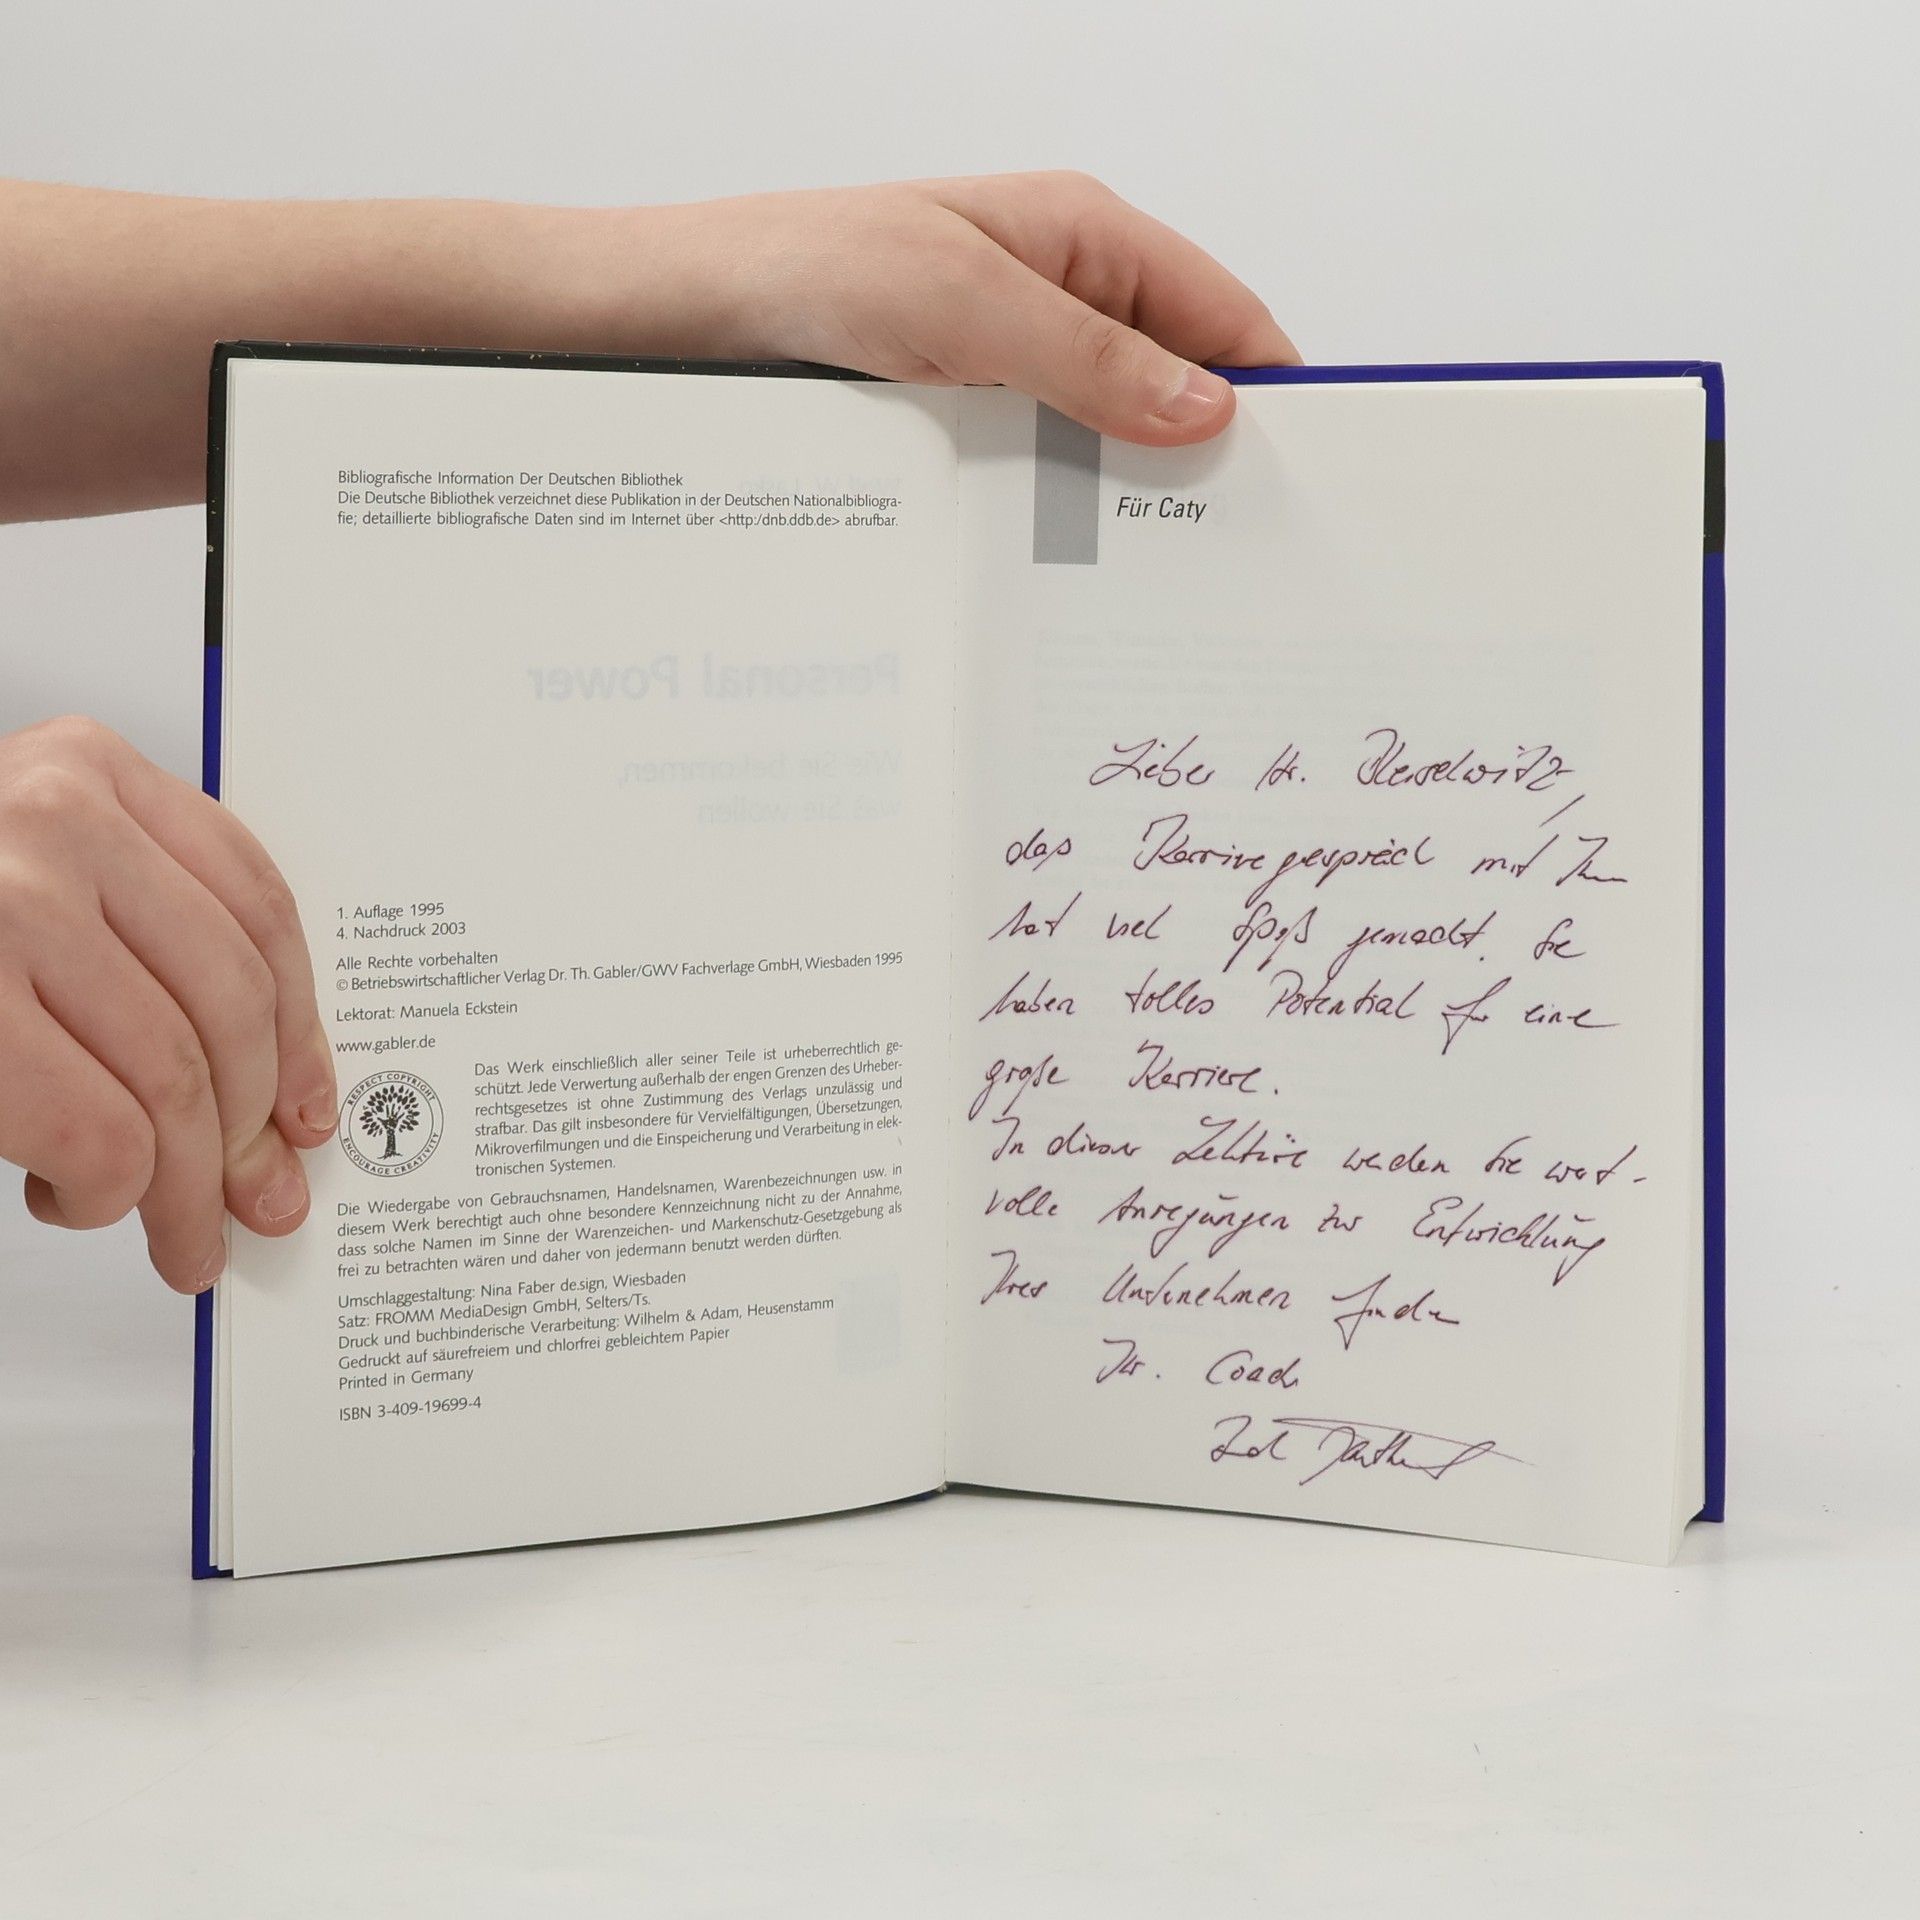 Bibliografische Information Der Deutschen Bibliothek
Die Deutsche Bibliothek verzeichnet diese Publikation in der Deutschen Nationalbibliogra-
fie; detaillierte bibliografische Daten sind im Internet über <http:/dnb.ddb.de> abrufbar.
Personal Power
Wie Sie bekommen,
was Sie wollen
1. Auflage 1995
4. Nachdruck 2003
Alle Rechte vorbehalten
© Betriebswirtschaftlicher Verlag Dr. Th. Gabler/GWV Fachverlage GmbH, Wiesbaden 1995
Lektorat: Manuela Eckstein
www.gabler.de
RESPECT COPYRIGHT
ENCOURAGE CREATIVITY
Das Werk einschließlich aller seiner Teile ist urheberrechtlich ge-
schützt. Jede Verwertung außerhalb der engen Grenzen des Urheber-
rechtsgesetzes ist ohne Zustimmung des Verlags unzulässig und
strafbar. Das gilt insbesondere für Vervielfältigungen, Übersetzungen,
Mikroverfilmungen und die Einspeicherung und Verarbeitung in elek-
tronischen Systemen.
Die Wiedergabe von Gebrauchsnamen, Handelsnamen, Warenbezeichnungen usw. in
diesem Werk berechtigt auch ohne besondere Kennzeichnung nicht zu der Annahme,
dass solche Namen im Sinne der Warenzeichen- und Markenschutz-Gesetzgebung als
frei zu betrachten wären und daher von jedermann benutzt werden dürften.
Umschlaggestaltung: Nina Faber de.sign, Wiesbaden
Satz: FROMM MediaDesign GmbH, Selters/Ts.
Druck und buchbinderische Verarbeitung: Wilhelm & Adam, Heusenstamm
Gedruckt auf säurefreiem und chlorfrei gebleichtem Papier
Printed in Germany
ISBN 3-409-19699-4
Für Caty
Lieber Hr.
das Karrieregespräch mit Ihnen
hat viel Spaß gemacht. Sie
haben tolles Potential für eine
große Karriere.
In dieser Lektüre werden Sie wert-
volle Anregungen zur Entwicklung
Ihres Unternehmen finden
Ihr. Coach